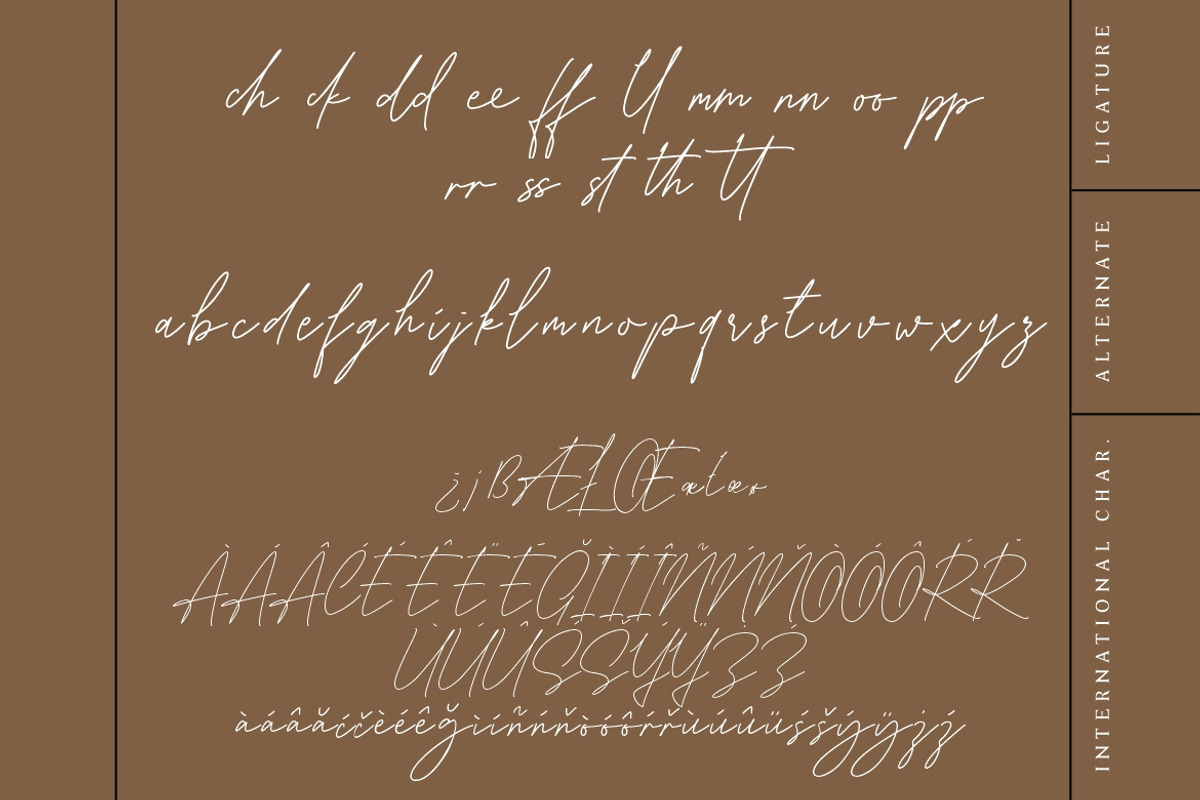 ch ck dd ee ff ll mm nn oo pp
rr ss st th tt
LIGATURE
abcdefghijklmnopqrstuvwxyz
ALTERNATE
¿¡ßÆŁŒæłœø
ÀÁÂĆÉÈÊËĒĞÌÍÎÑŃŇÒÓÔŔŘ
ÙÚÛŚŠÝŸŻŹ
àáâăćčèéêğìíñńňòóôŕřùúûüśšýÿżź
INTERNATIONAL CHAR.